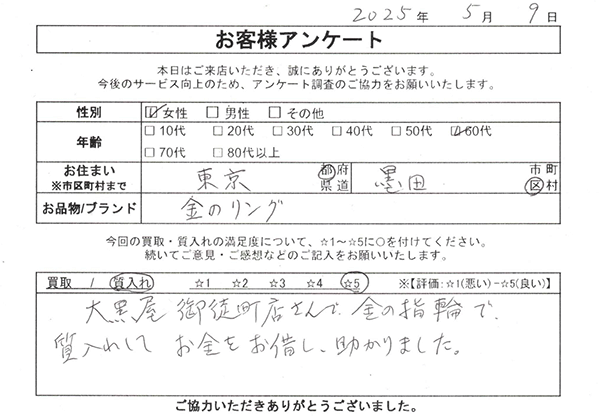 2025年 5月 9日
お客様アンケート
本日はご来店いただき、誠にありがとうございます。
今後のサービス向上のため、アンケート調査のご協力をお願いいたします。
性別 ☑女性 □男性 □その他
年齢 □10代 □20代 □30代 □40代 □50代 ☑60代
□70代 □80代以上
お住まい ※市区町村まで 東京 都府県道 墨田 市町区村
お品物/ブランド 金のリング
今回の買取・質入れの満足度について、☆1～☆5に○を付けてください。
続いてご意見・ご感想などのご記入をお願いいたします。
買取 / 質入れ ☆1 ☆2 ☆3 ☆4 ☆5 ※【評価:☆1(悪い)-☆5(良い)】
大黒屋 御徒町店さんで、金の指輪で、
質入れして お金をお借し、助かりました。
ご協力いただきありがとうございました。